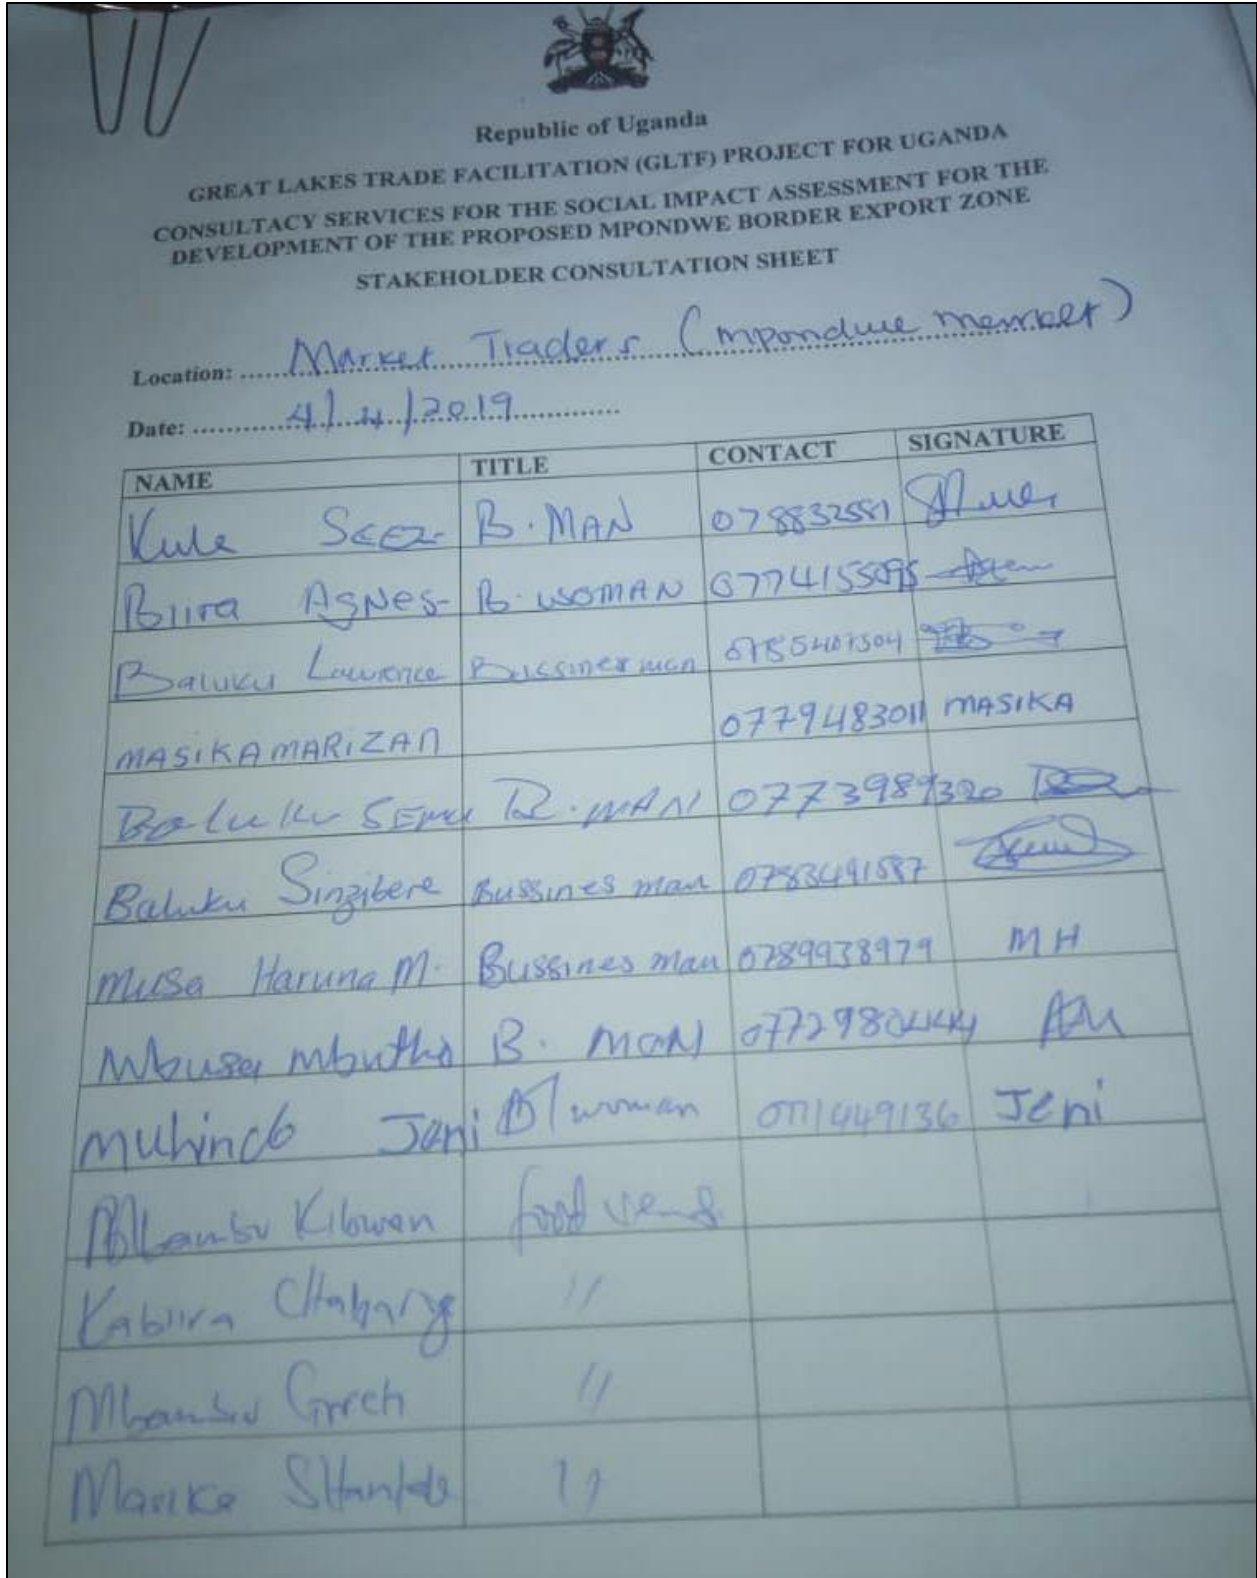 Republic of Uganda
GREAT LAKES TRADE FACILITATION (GLTF) PROJECT FOR UGANDA
CONSULTACY SERVICES FOR THE SOCIAL IMPACT ASSESSMENT FOR THE
DEVELOPMENT OF THE PROPOSED MPONDWE BORDER EXPORT ZONE
STAKEHOLDER CONSULTATION SHEET
Location: Market Traders (mpondwe market)
Date: 4/4/2019
NAME TITLE CONTACT SIGNATURE
Kule B.MAN 078832581
Biira Agnes B.WOMAN 0774155095
Baluku Lawrence Bussinesman
MASIKA MARIZAN 0779483011 MASIKA
Baluku B.MAN 0773989320
Baluku Sinzibere Bussines man 0783491587
Musa Haruna M. Bussines man 0789938979 MH
Mbusa Mbutho B. MAN
Muhindo Jeni B/woman 0771449136 Jeni
Mbambu food
Kabiira "
Mbambu "
Masika "